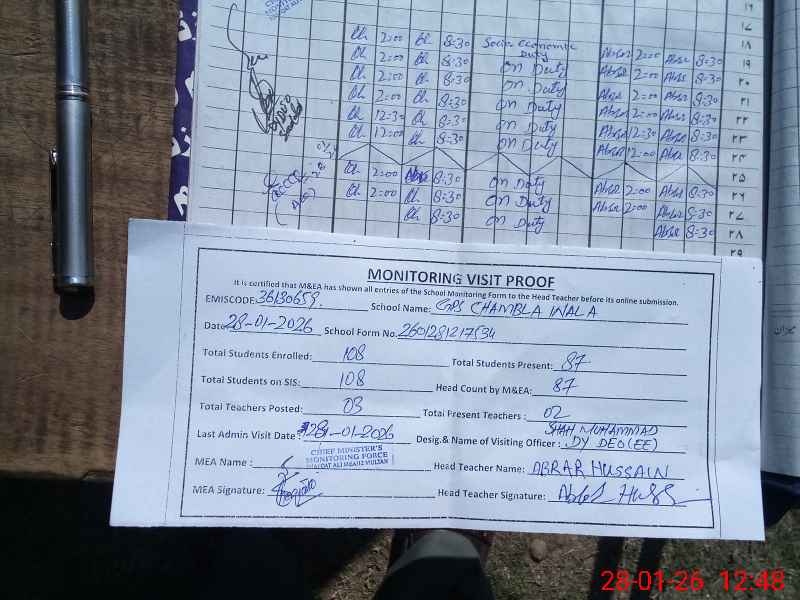 Ch 2:00 Ch 8:30 Socio economic Duty Absr 2:00 Absr 8:30 ۱۸
Ch 2:00 Ch 8:30 on Duty Absr 2:00 Absr 8:30 ۱۹
Ch 2:00 Ch 8:30 on Duty Absr 2:00 Absr 8:30 ۲۰
Ch 2:00 Ch 8:30 on Duty Absr 2:00 Absr 8:30 ۲۱
Ch 12:30 Ch 8:30 on Duty Absr 12:30 Absr 8:30 ۲۲
Ch 12:00 Ch 8:30 on Duty Absr 12:00 Absr 8:30 ۲۳
Ch 2:00 8:30 on Duty Absr 2:00 Absr 8:30
Ch 2:00 Ch 8:30 on Duty Absr 2:00 Absr 8:30 ۲۷
Ch 8:30 on Duty Absr 8:30 ۲۸
MONITORING VISIT PROOF
It is certified that M&EA has shown all entries of the School Monitoring Form to the Head Teacher before its online submission.
EMISCODE: 36130659. School Name: GPS CHAMBLA WALA
Date: 28-01-2026 School Form No. 2601281217534
Total Students Enrolled: 108 Total Students Present: 87
Total Students on SIS: 108 Head Count by M&EA: 87
Total Teachers Posted: 03 Total Present Teachers : 02
Last Admin Visit Date : 28-01-2026 Desig.& Name of Visiting Officer : SHAH MUHAMMAD DY DEO(EE)
MEA Name : CHIEF MINISTER'S MONITORING FORCE Head Teacher Name: ABRAR HUSSAIN
MEA Signature: Head Teacher Signature:
28-01-26 12:48